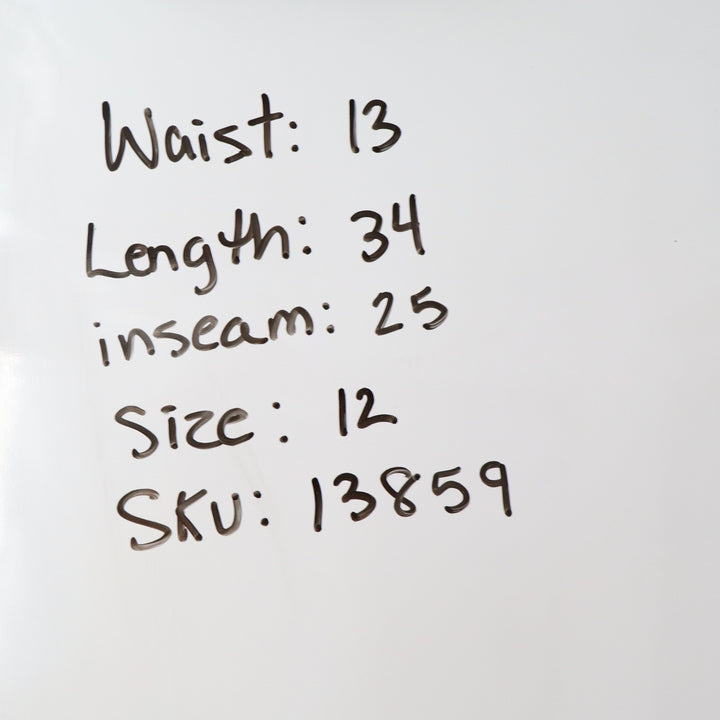 Waist: 13
Length: 34
inseam: 25
Size: 12
SKU: 13859